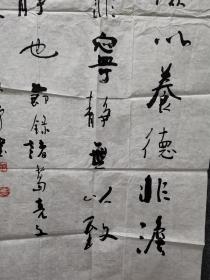 以養德非澹
非寧静無以致
也節録諸葛亮文